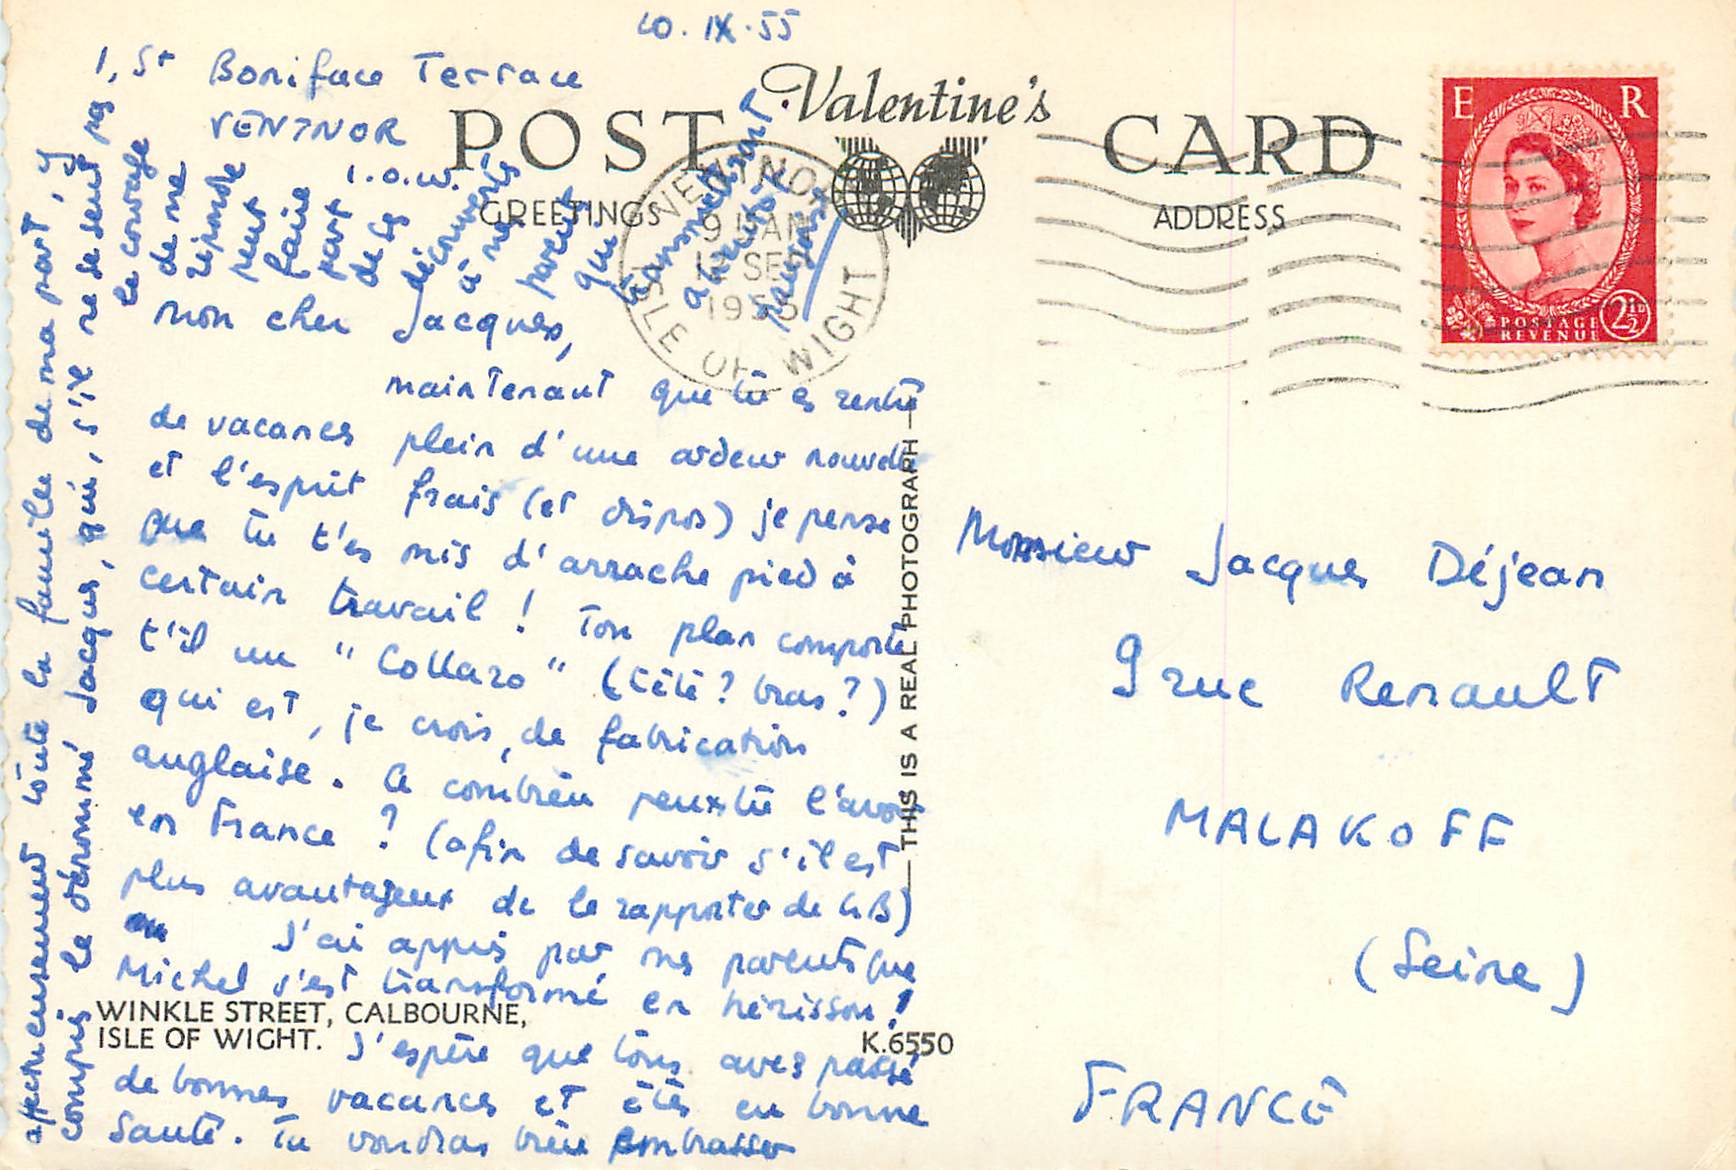 10.IX.55
1, St Boniface Terrace
VENTNOR
I.O.W.
Valentine's
POST CARD
GREETINGS
ADDRESS
E R
POSTAGE
REVENUE
2½D
VENTNOR
9 15 AM
12 SEP
1955
ISLE OF WIGHT
mon cher Jacques,
maintenant que tu es rentré
de vacances plein d'une ardeur nouvelle
et l'esprit frais (et dispos) je pense
que tu t'es mis d'arrache pied à
certain travail ! Ton plan comporte
t'il un "Collaro" (tête ? bras ?)
qui est, je crois, de fabrication
anglaise. A combien peux tu l'avoir
en France ? (afin de savoir s'il est
plus avantageux de le rapporter de GB)
J'ai appris par mes parents que
Michel s'est transformé en hérisson !
J'espère que tous avez passé
de bonnes vacances et étés en bonne
santé. Tu voudras bien embrasser
affectueusement toute la famille de ma part, y
compris le dénommé Jacques, qui, s'il ne se sent pas
le courage
de me
répondre
peut
faire
part
de ses
découvertes
à mes
parents
qui
transmettront
WINKLE STREET, CALBOURNE,
ISLE OF WIGHT.
K.6550
THIS IS A REAL PHOTOGRAPH
Monsieur Jacques Déjean
9 rue Renault
MALAKOFF
(Seine)
FRANCE